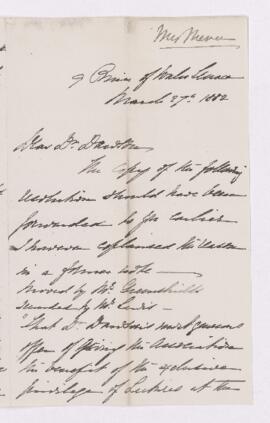 9 Prince of Wales Terrace
March 27th 1882
Dear Dr. Davidson
The copy of the following
resolution should have been
forwarded to you earlier
I however explained the reason
in a former note —
Moved by Mr. Greenshields
Seconded by Mr. Lewis —
"That Dr. Davidson's most generous
offer of giving the Association
the benefit of the exclusive
privilege of Lectures at the